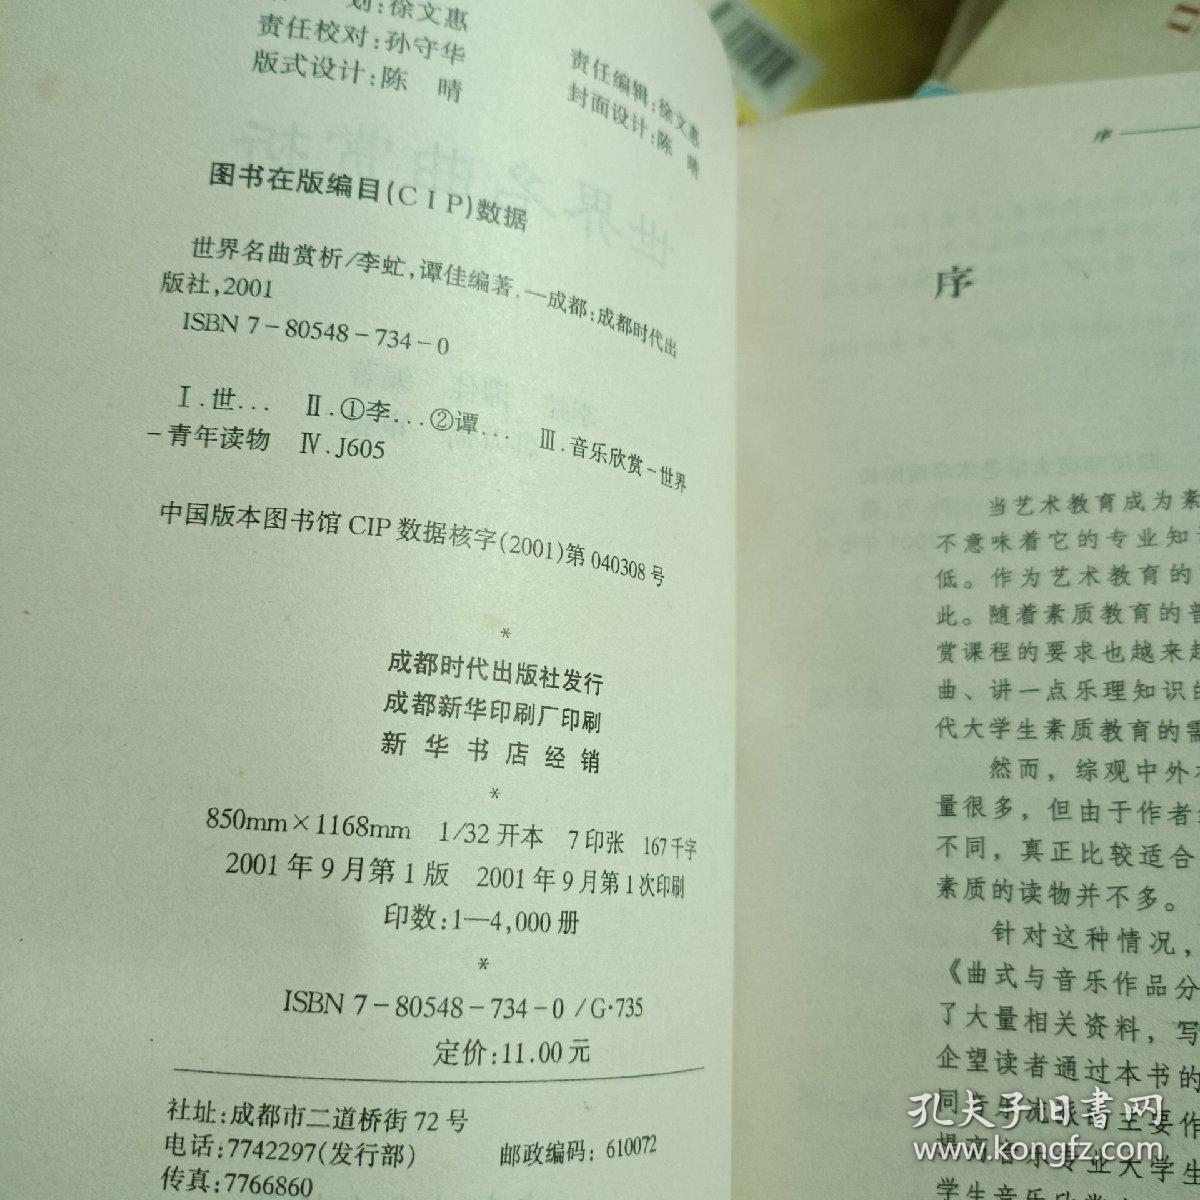 划:徐文惠
责任校对:孙守华
版式设计:陈 晴
责任编辑:徐文惠
封面设计:陈 晴
图书在版编目(CIP)数据
世界名曲赏析/李虻,谭佳编著.—成都:成都时代出
版社,2001
ISBN 7-80548-734-0
Ⅰ.世… Ⅱ.①李…②谭… Ⅲ.音乐欣赏-世界
-青年读物 Ⅳ.J605
中国版本图书馆CIP数据核字(2001)第040308号
*
成都时代出版社发行
成都新华印刷厂印刷
新华书店经销
*
850mm×1168mm 1/32开本 7印张 167千字
2001年9月第1版 2001年9月第1次印刷
印数:1—4,000册
*
ISBN 7-80548-734-0/G·735
定价:11.00元
社址:成都市二道桥街72号
电话:7742297(发行部) 邮政编码:610072
传真:7766860
序
序
当艺术教育成为素
不意味着它的专业知
低。作为艺术教育的
此。随着素质教育的普
赏课程的要求也越来越
曲、讲一点乐理知识的
代大学生素质教育的需
然而,综观中外
量很多,但由于作者
不同,真正比较适合
素质的读物并不多。
针对这种情况,
《曲式与音乐作品分
了大量相关资料,写
企望读者通过本书的
同音乐流派的主要作
提高音乐专业大学生
学生音乐欣赏
孔夫子旧书网
www.kongfz.com